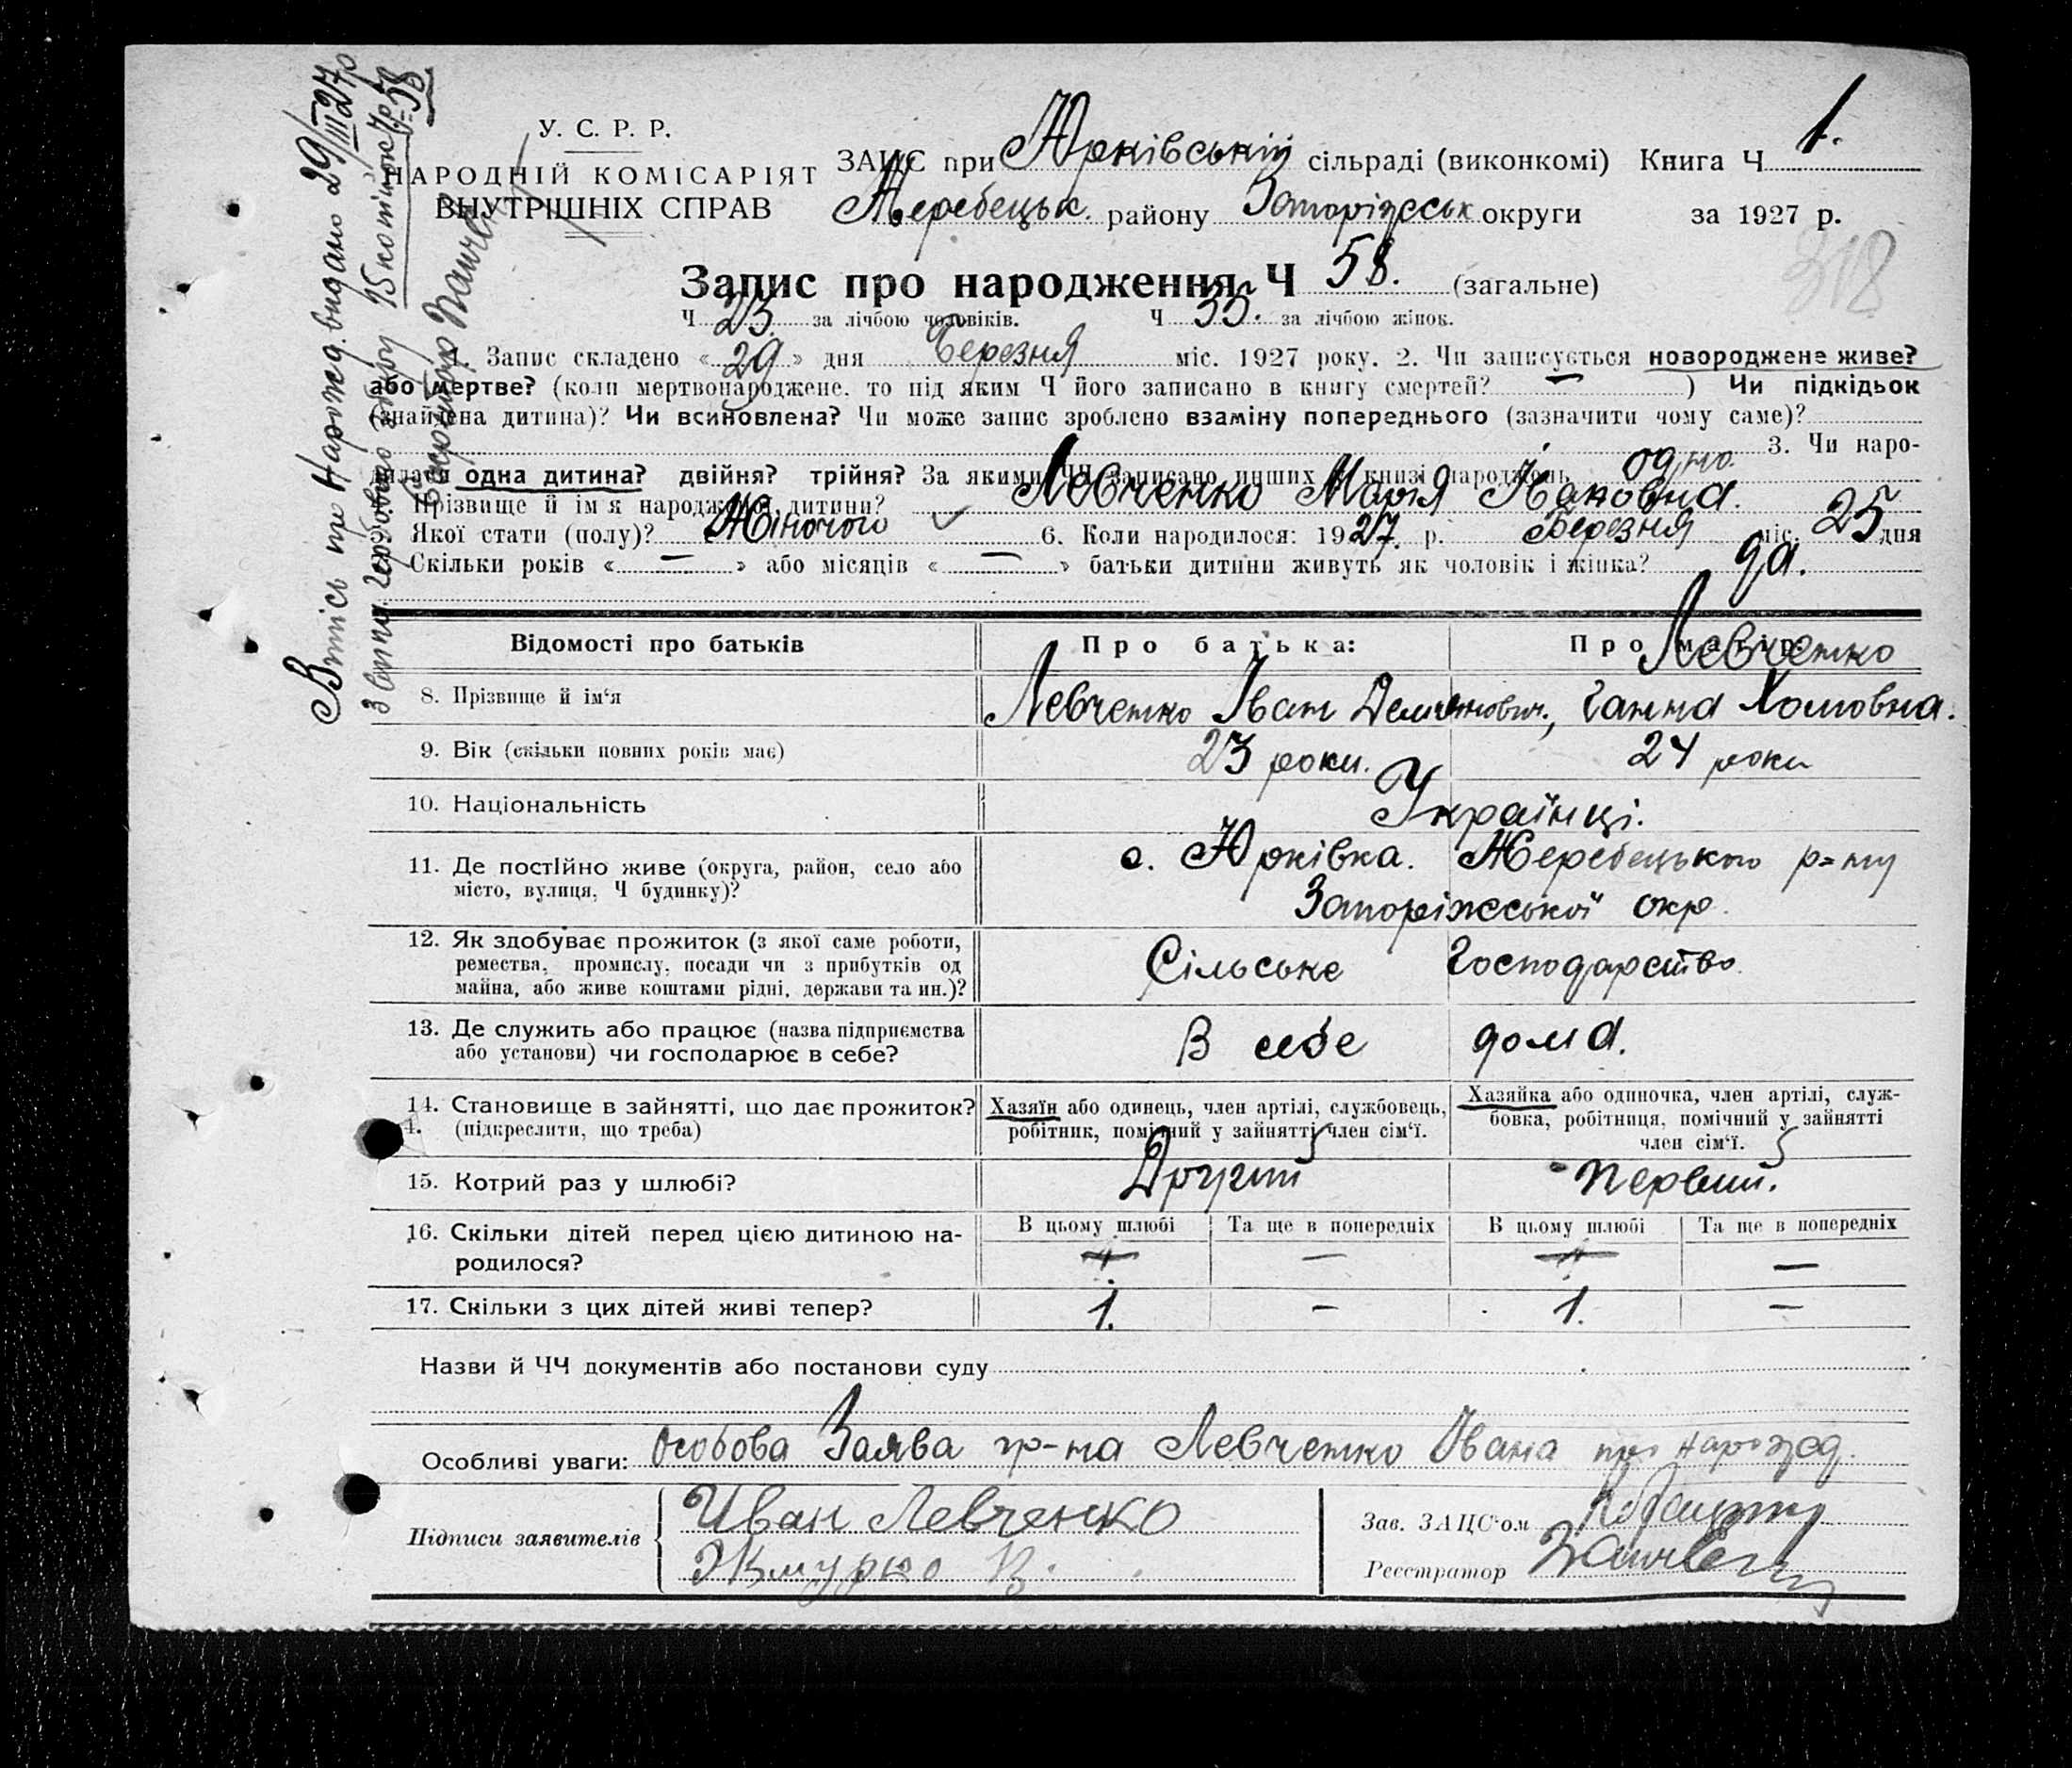 У. С. Р. Р.
НАРОДНІЙ КОМІСАРІЯТ
ВНУТРІШНІХ СПРАВ
ЗАЦС при Юрківській сільраді (виконкомі) Книга Ч 1.
Жеребецьк. району Запоріжськ округи за 1927 р.
318
Запис про народження Ч 58. (загальне)
Ч 23. за лічбою чоловіків. Ч 35. за лічбою жінок.
1. Запис складено «29» дня Березня міс. 1927 року. 2. Чи записується новороджене живе?
або мертве? (коли мертвонароджене, то під яким Ч його записано в книгу смертей? — ) Чи підкідьок
(знайдена дитина)? Чи всиновлена? Чи може запис зроблено взаміну попереднього (зазначити чому саме)?
3. Чи наро-
дилася одна дитина? двійня? трійня? За якими ЧЧ записано инших в книзі народжень одно.
Прізвище й ім'я народженої дитини? Левченко Марія Івановна.
Якої стати (полу)? Жіночого 6. Коли народилося: 1927. р. Березня міс. 25 дня
Скільки років «—» або місяців «—» батьки дитини живуть як чоловік і жінка? да.
Відомості про батьків Про батька: Про матір:
8. Прізвище й ім'я Левченко Іван Демянович, Левченко Ганна Хомовна.
9. Вік (скільки повних років має) 23 роки. 24 роки
10. Національність Українці.
11. Де постійно живе (округа, район, село або
місто, вулиця, Ч будинку)?
с. Юрківка. Жеребецького р-ну
Запоріжської окр.
12. Як здобуває прожиток (з якої саме роботи,
ремества, промислу, посади чи з прибутків од
майна, або живе коштами рідні, держави та ин.)?
Сільське Господарство
13. Де служить або працює (назва підприємства
або установи) чи господарює в себе?
В себе дома.
14. Становище в зайнятті, що дає прожиток?
(підкреслити, що треба)
Хазяїн або одинець, член артілі, службовець,
робітник, помічний у зайнятті член сім'ї.
Хазяйка або одиночка, член артілі, служ-
бовка, робітниця, помічний у зайнятті
член сім'ї.
15. Котрий раз у шлюбі? Другий Первий.
16. Скільки дітей перед цією дитиною на-
родилося?
В цьому шлюбі Та ще в попередніх В цьому шлюбі Та ще в попередніх
— —
17. Скільки з цих дітей живі тепер? 1. — 1. —
Назви й ЧЧ документів або постанови суду
Особливі уваги: особова Заява гр-на Левченко Івана про народж.
Підписи заявителів
Иван Левченко
Жмурко В.
Зав. ЗАЦС'ом
Реєстратор
Випись про Народж. видано 29/III 27р